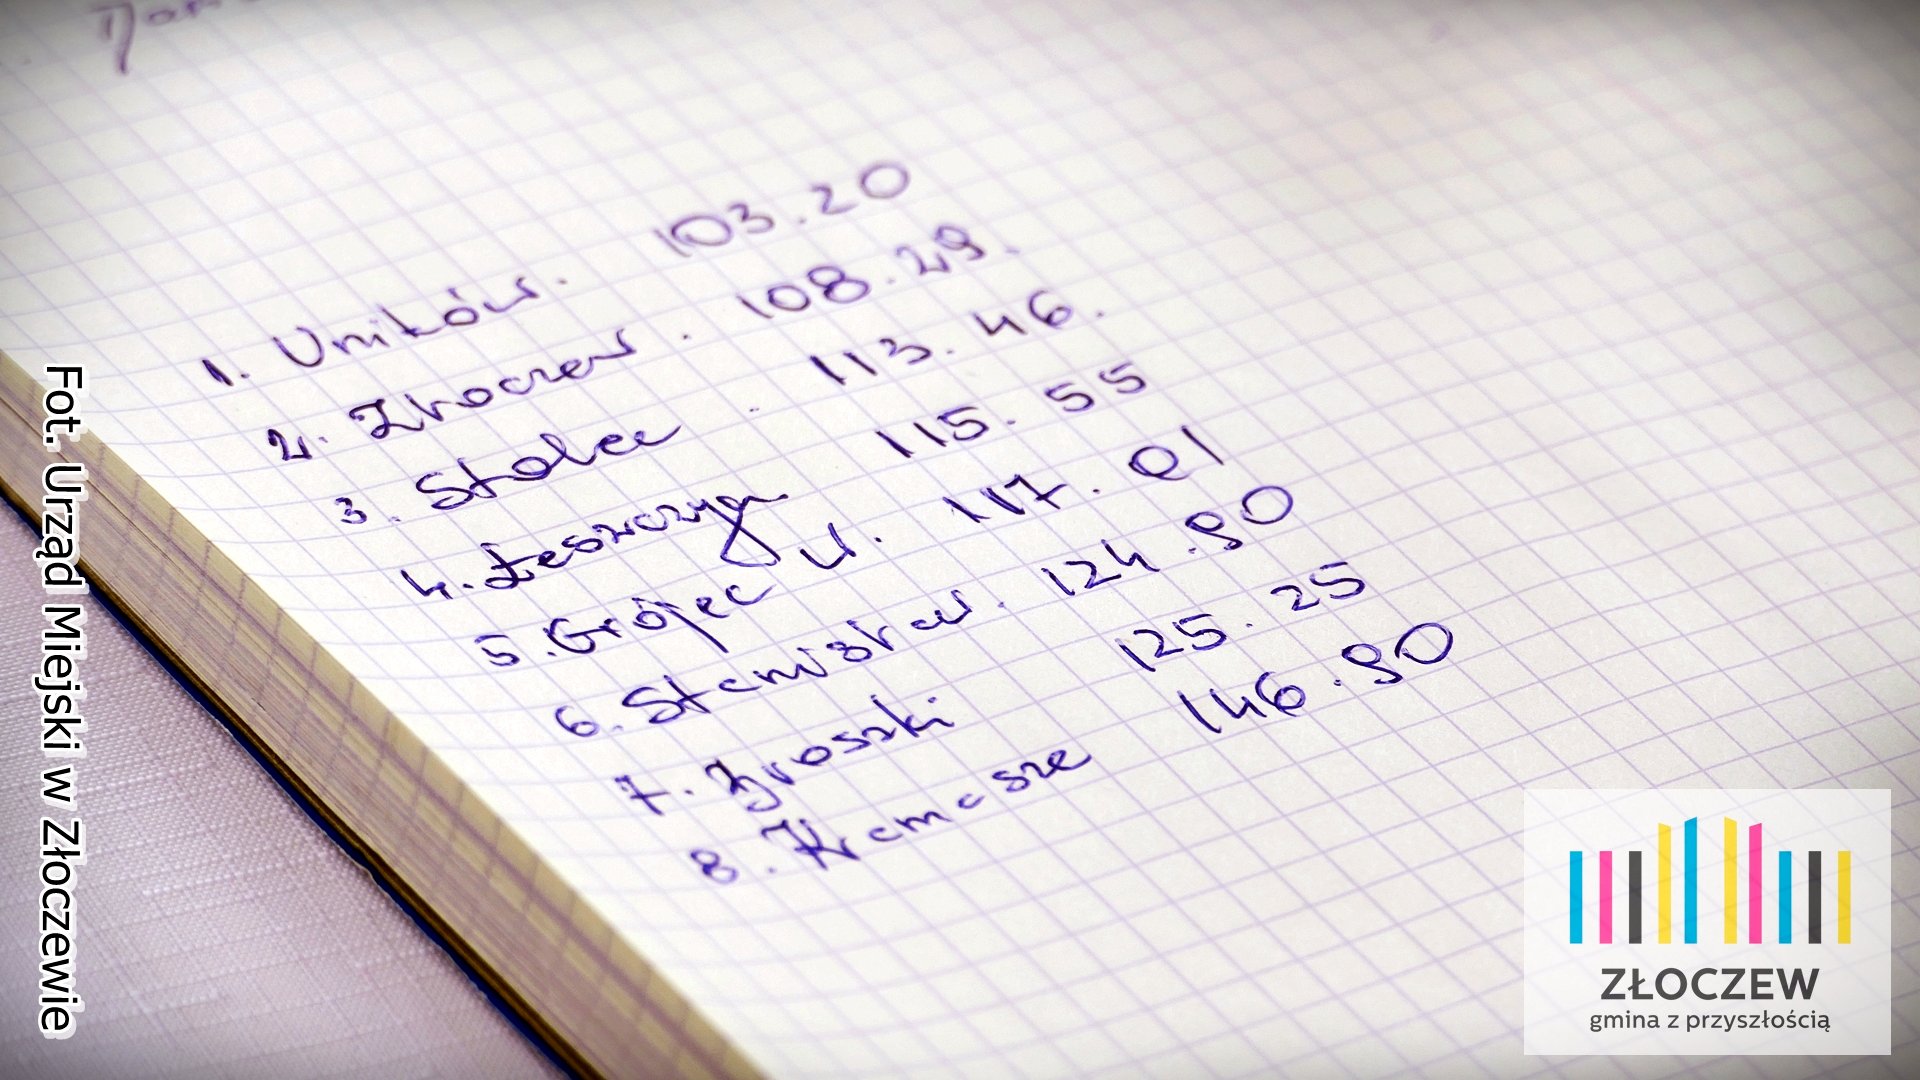 1. Uników. 103.20
2. Złoczew. 108.29.
3. Stolec. 113.46.
4. Łeszczyn 115.55
5. Grójec W. 117.01
6. Stanisław. 124.90
7. Broszki 125.25
8. Kamasze 146.90
Fot. Urząd Miejski w Złoczewie
ZŁOCZEW
gmina z przyszłością